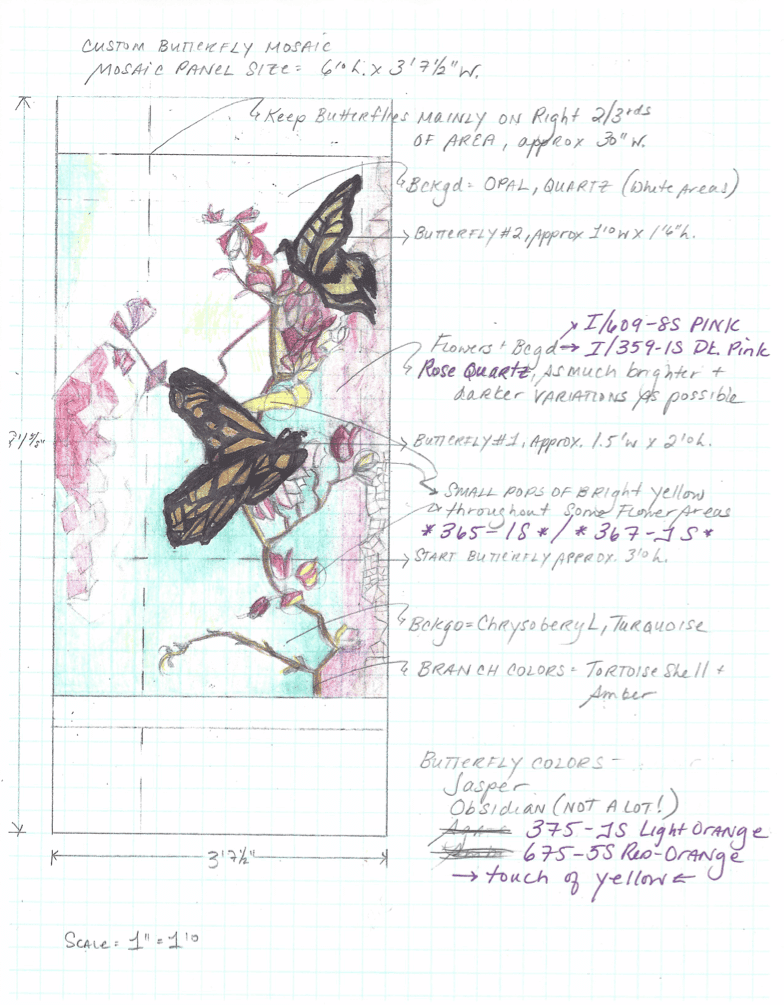 CUSTOM BUTTERFLY MOSAIC
MOSAIC PANEL SIZE = 6'0" h. x 3'7½" W.
Keep Butterflies MAINLY ON Right 2/3rds
OF AREA, approx 30" W.
Bckgd = OPAL, QUARTZ (White Areas)
BUTTERFLY #2, Approx 1'0" W x 1'6" h.
I/609-8S PINK
Flowers + Bcgd → I/359-1S Dk. Pink
Rose Quartz, As much brighter +
darker VARIATIONS As possible
BUTTERFLY #1, Approx. 1.5' W x 2'0" h.
SMALL POPS OF BRight Yellow
throughout Some Flower Areas
* 365-1S * / * 367-1S *
START BUTTERFLY APPROX. 3'0" h.
Bckgd = Chrysoberyl, Turquoise
BRANCH COLORS = Tortoise Shell +
Amber
BUTTERFLY COLORS -
Jasper
Obsidian (NOT A LOT!)
375-1S Light Orange
675-5S Red-Orange
→ touch of yellow ←
3'7½"
SCALE = 1" = 1'0"